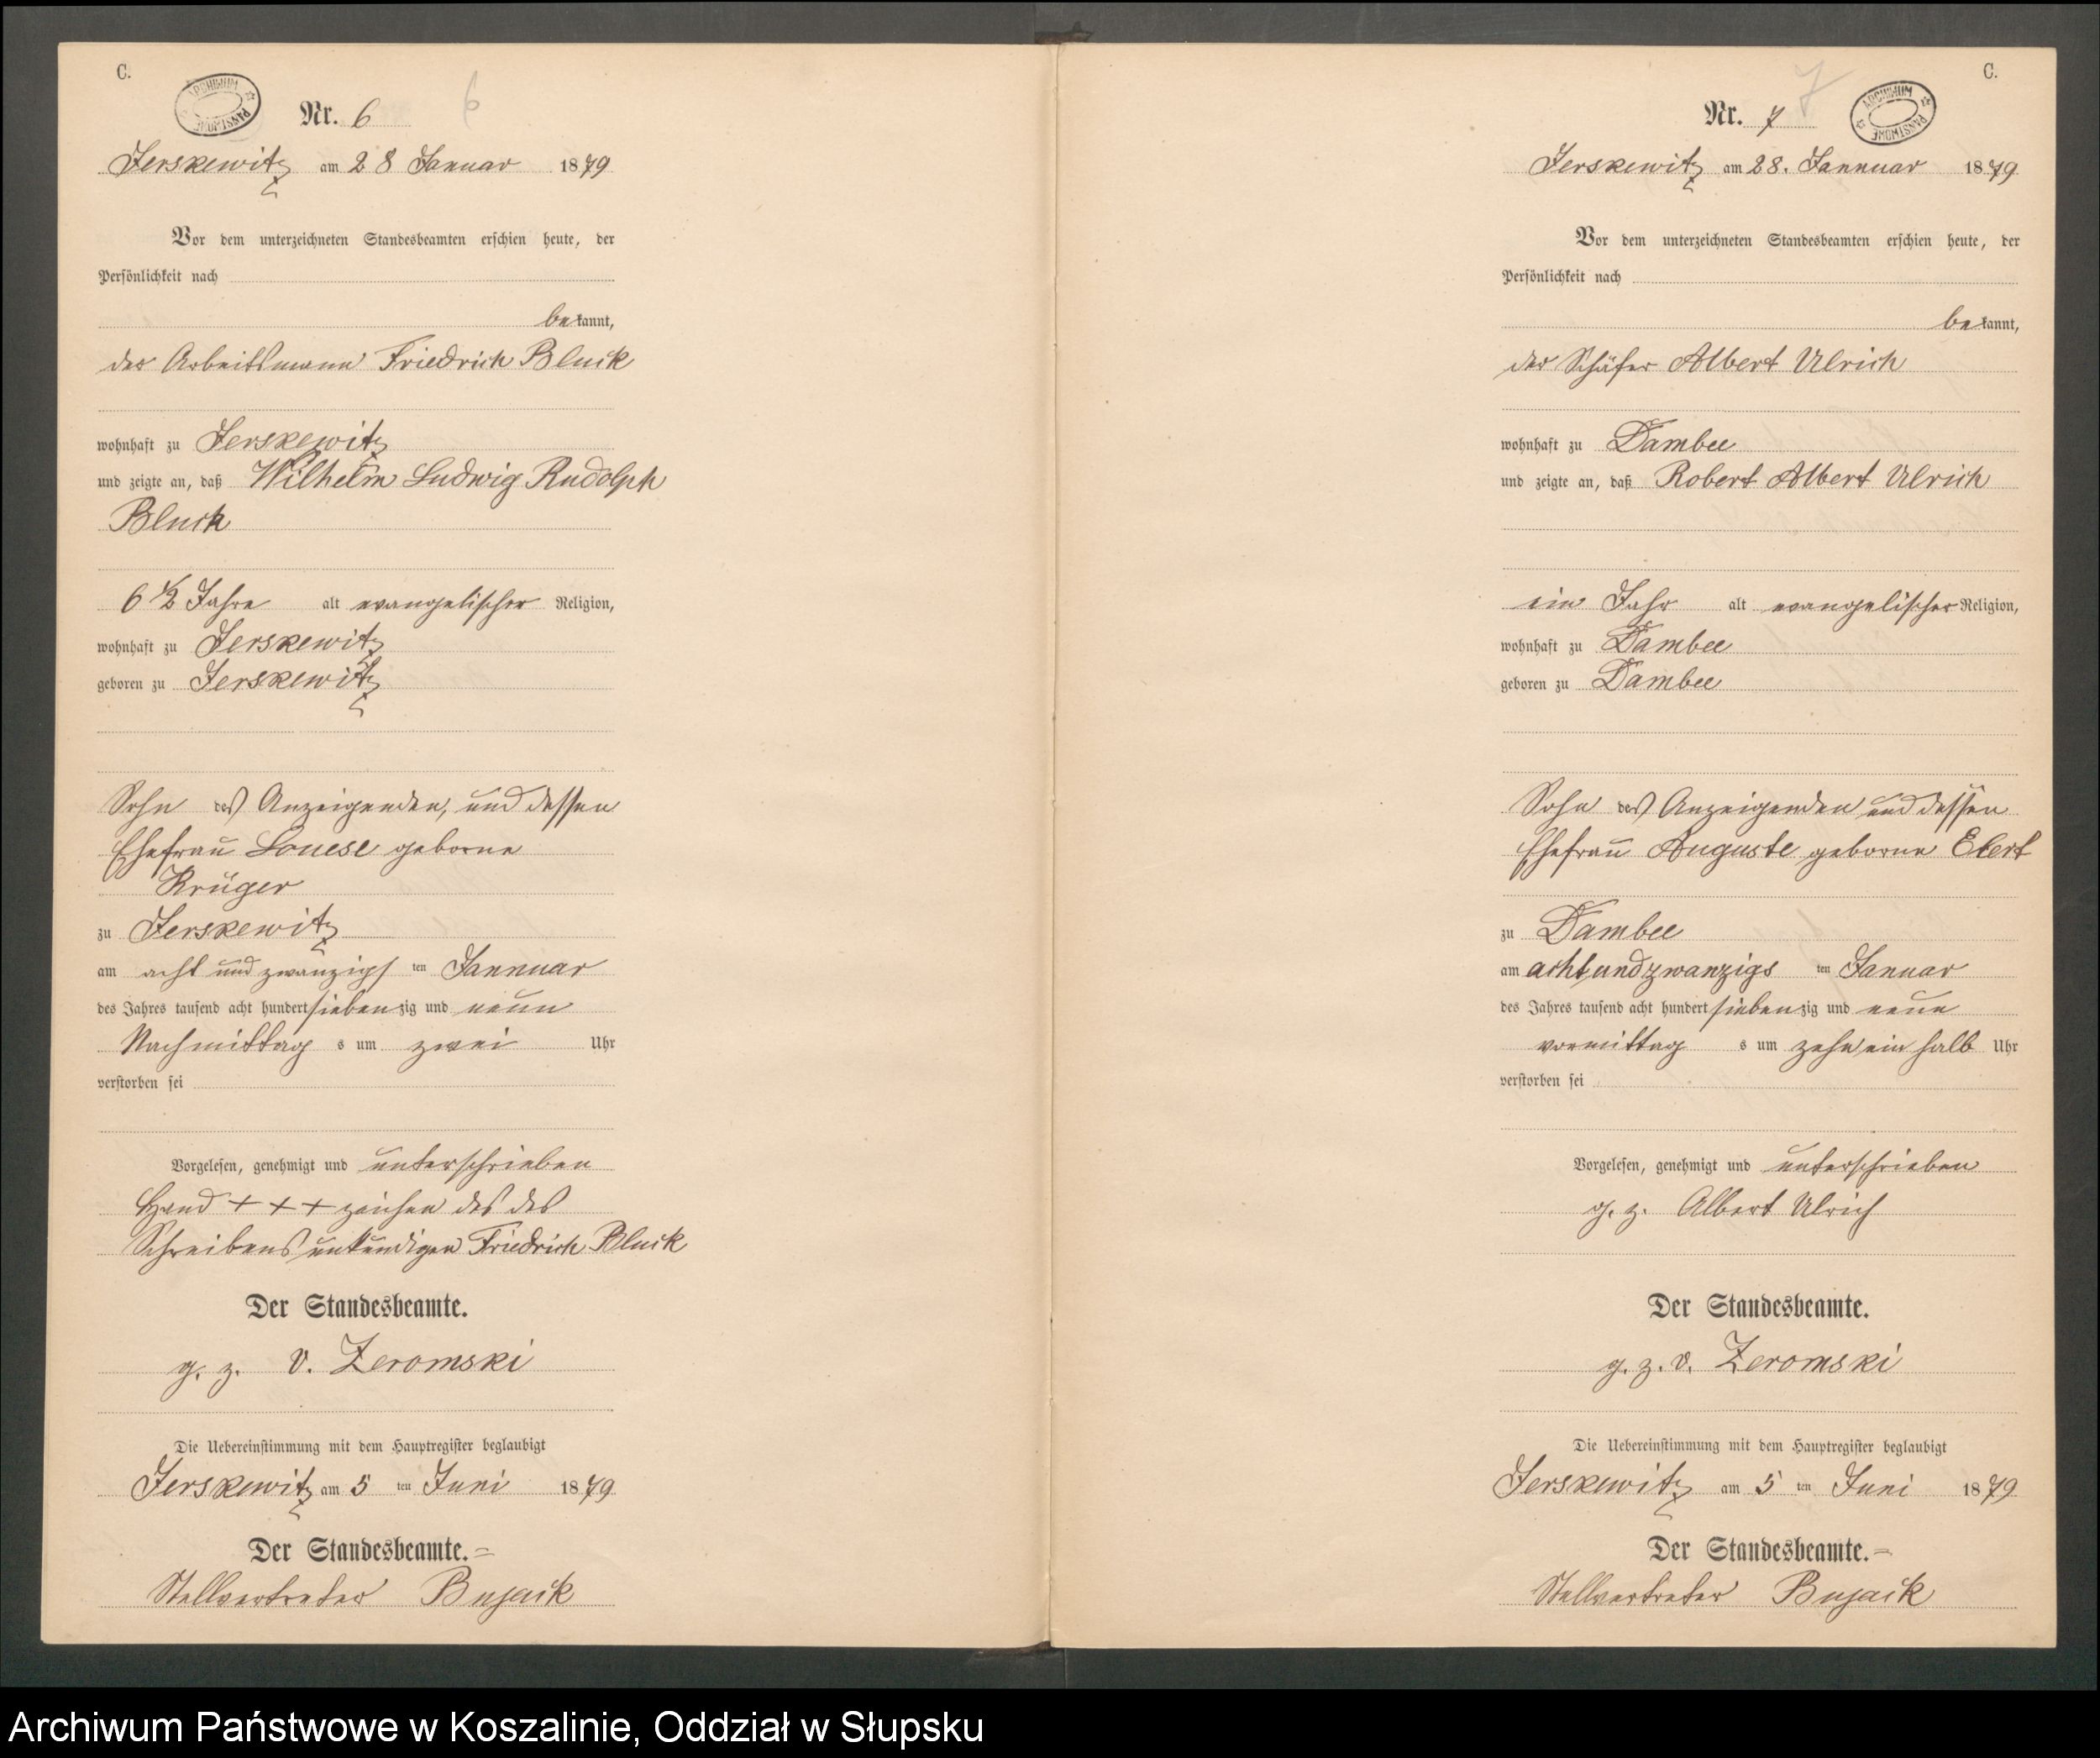 C.
ARCHIWUM PAŃSTWOWE
Nr. 6
6
Jerskewitz am 28 Januar 1879
Vor dem unterzeichneten Standesbeamten erschien heute, der
Persönlichkeit nach
bekannt,
der Arbeitsmann Friedrich Bluck
wohnhaft zu Jerskewitz
und zeigte an, daß Wilhelm Ludwig Rudolph
Bluck
6 1/2 Jahre alt evangelischer Religion,
wohnhaft zu Jerskewitz
geboren zu Jerskewitz
Sohn des Anzeigenden, und dessen
Ehefrau Louese geborne
Krüger
zu Jerskewitz
am acht und zwanzigs ten Jannuar
des Jahres tausend acht hundert siebenzig und neun
Nachmittag s um zwei Uhr
verstorben sei
Vorgelesen, genehmigt und unterschrieben
Hand + + + zeichen des des
Schreibens unkundigen Friedrich Bluck
Der Standesbeamte.
g. z. v. Zeromski
Die Uebereinstimmung mit dem Hauptregister beglaubigt
Jerskewitz am 5 ten Juni 1879
Der Standesbeamte.
Stellvertreter Bujack
C.
7
ARCHIWUM PAŃSTWOWE
Nr. 7
Jerskewitz am 28. Jannuar 1879
Vor dem unterzeichneten Standesbeamten erschien heute, der
Persönlichkeit nach
bekannt,
der Schäfer Albert Ulrich
wohnhaft zu Dambee
und zeigte an, daß Robert Albert Ulrich
ein Jahr alt evangelischer Religion,
wohnhaft zu Dambee
geboren zu Dambee
Sohn des Anzeigenden und dessen
Ehefrau Auguste geborne Ebert
zu Dambee
am achtundzwanzigs ten Januar
des Jahres tausend acht hundert siebenzig und neun
vormittag s um zehn ein halb Uhr
verstorben sei
Vorgelesen, genehmigt und unterschrieben
g. z. Albert Ulrich
Der Standesbeamte.
g. z. v. Zeromski
Die Uebereinstimmung mit dem Hauptregister beglaubigt
Jerskewitz am 5 ten Juni 1879
Der Standesbeamte.
Stellvertreter Bujack
Archiwum Państwowe w Koszalinie, Oddział w Słupsku